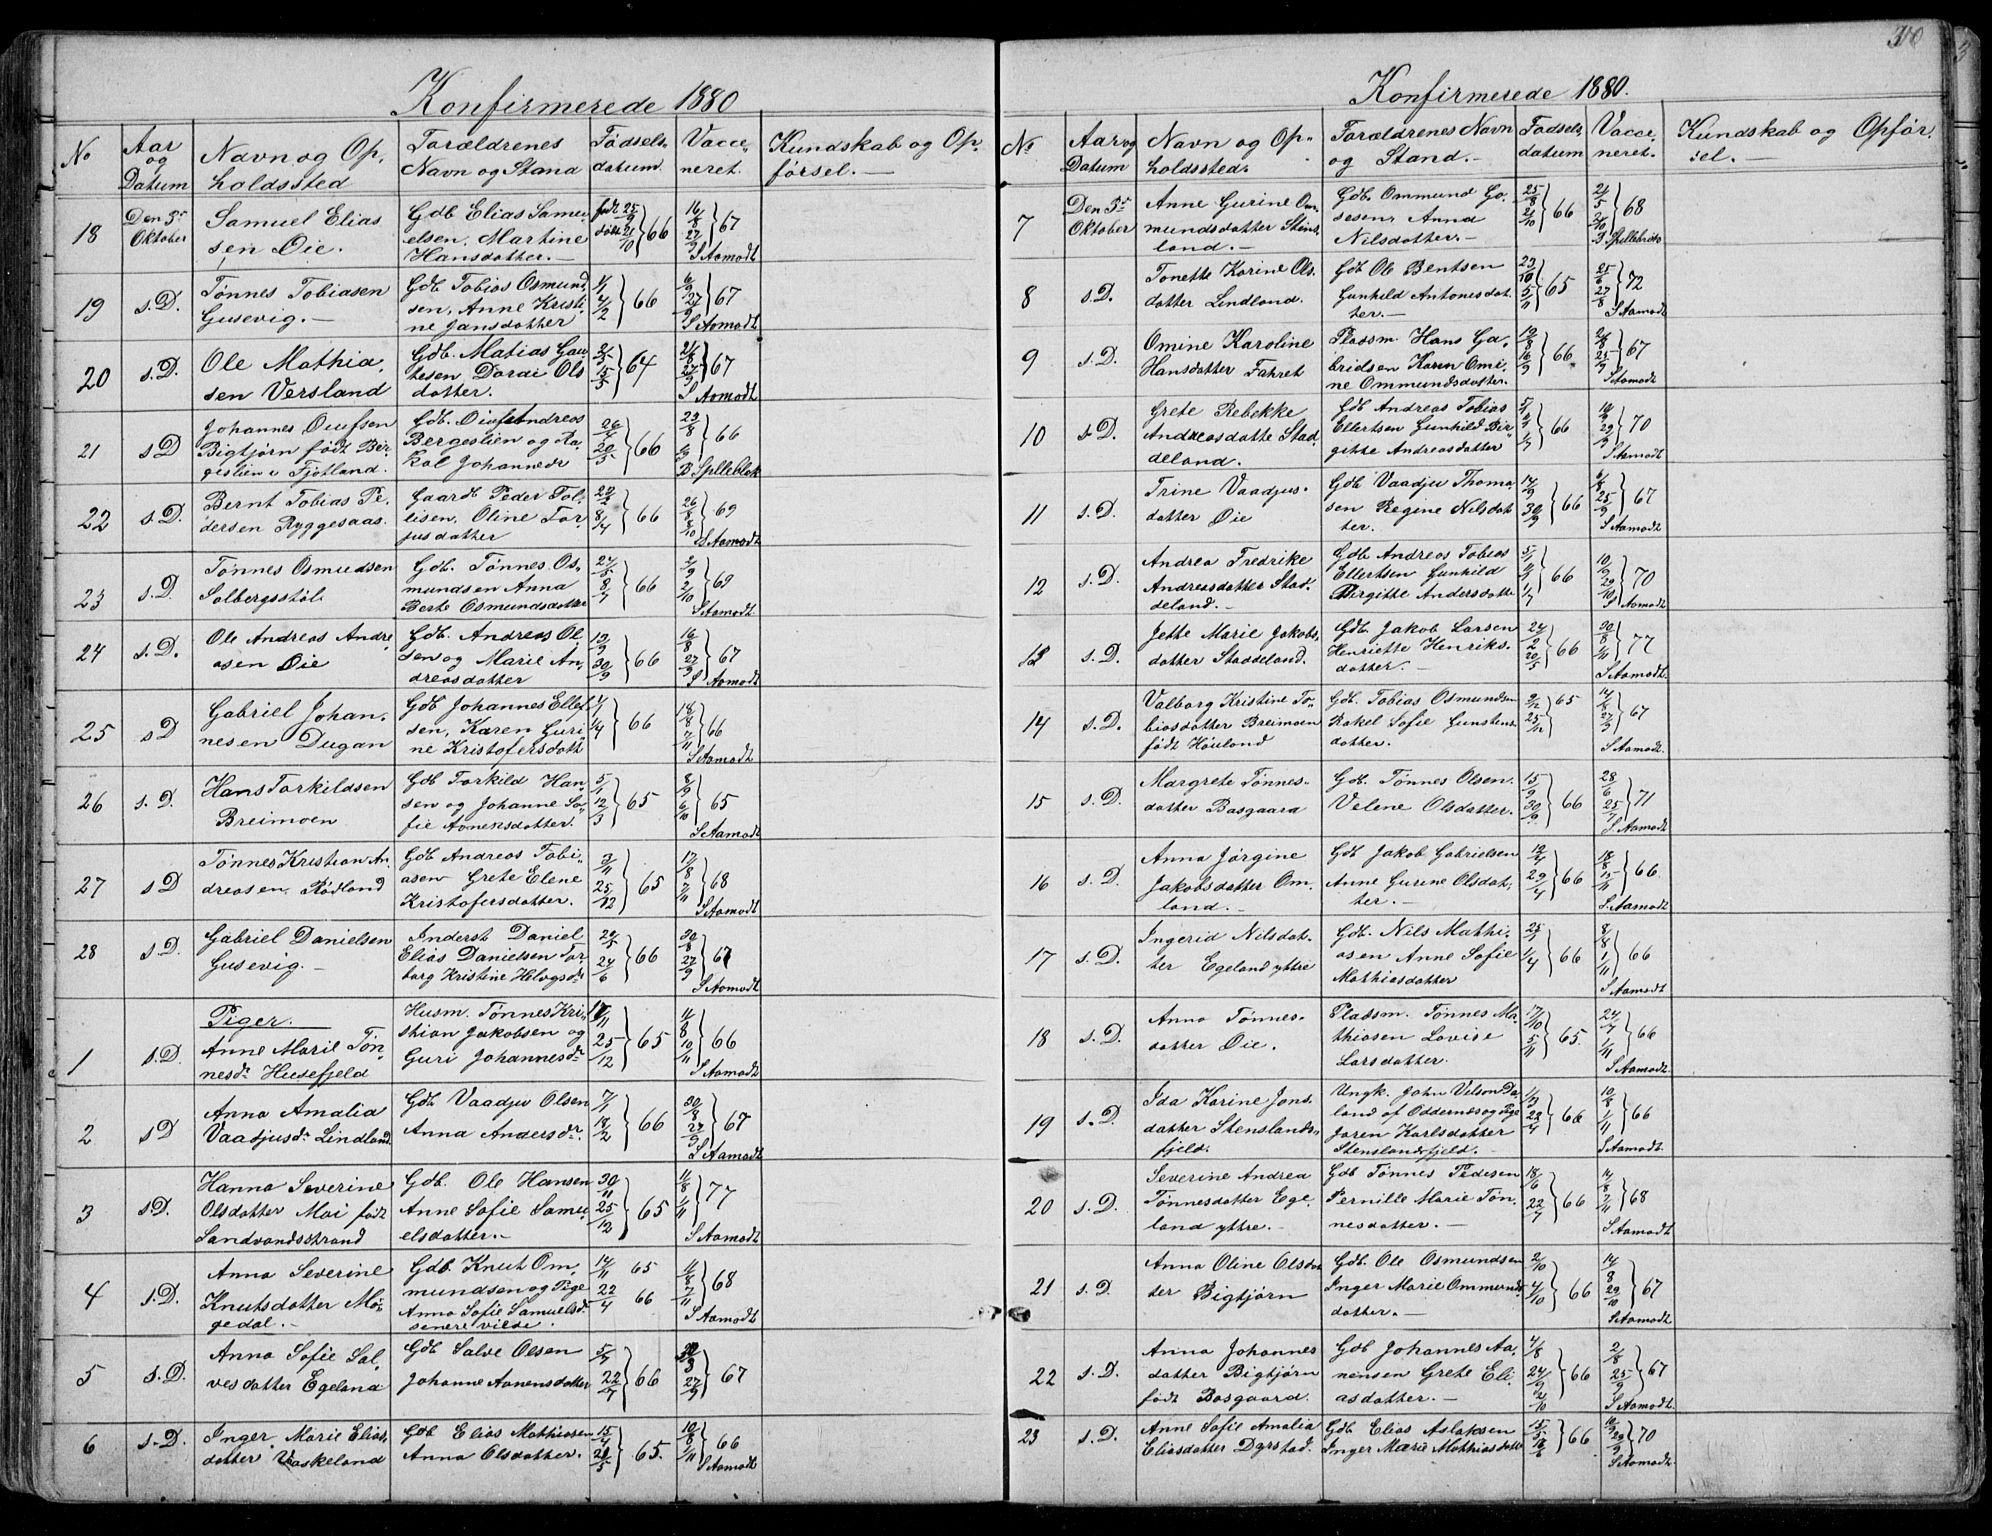 310
Konfirmerede 1880
No
Aar
og
Datum
Navn og Op,
holdssted
Forældrenes
Navn og Stand
Fødsels,
datum.
Vacce,
neret.
Kundskab og Op,
førsel.—
18
Den 3e
Oktober
Samuel Elias
sen Øie.
Gdb Elias Samu,
elsen, Martine
Hansdatter.—
født 25/9
døbt 21/10 } 66
16/8
27/9 } 67
S Aamodt
19
s. D.
Tønnes Tobiasen
Gusevig.—
Gdb. Tobias Osmund,
sen, Anne Kristi,
ne Jansdatter
1/1
4/2 } 66
6/9
27/9 } 67
S Aamodt
20
s. D.
Ole Mathia,
sen Versland
Gdb. Matias Gau,
tesen Dordi Ols
datter.
} 64
21/8
27/9 } 67
S Aamodt
21
s D
Johannes Olufsen
Bigtjørn født Ber,
geslien i Fjotland.
Gdb. Andreas
Bergeslien og Ra,
kel Johannedr
26/4
20/5 } 66
23/8
} 66
22
s. D.
Bernt Tobias Pe,
dersen Ryggesaas.
Gaardb. Peder Tol,
lisen, Oline Tor,
jusdatter
} 66
26/8
8/10 } 69
S Aamodt
23
s. D.
Tønnes Osmudsen
Solbergsstøl
Gdb. Tønnes Os,
mundsen Anna
Berte Osmundsdatter
24/5
8/7 } 66
2/9
2/10 } 69
S Aamodt
24
s. D.
Ole Andreas Andre
asen Øie
Gdb. Andreas Ol,
sen og Marie An,
dreasdatter
19/9
30/9 } 66
16/8
27/9 } 67
S Aamodt
25
s D
Gabriel Johan,
nesen Dugan
Gdb Johannes Ellef
sen, Karen Guri,
ne Kristofersdatt
1/1
1/4 } 66
18/8
7/11 } 66
S Aamodt
26
s. D.
Hans Torkildsen
Breimoen
Gdb Torkild Han,
sen og Johanne So,
fie Aanensdatter.
5/1
12/3 } 65
8/9
6/10 } 65
S Aamodt
27
s D
Tønnes Kristian An
dreasen Rødland
Gdb Andreas Tobi,
asen Grete Elene
Kristofersdatter.
3/11
25/12 } 65
17/8
7/11 } 68
S Aamodt
28
s. D
Gabriel Danielsen
Gusevig.—
Inderst Daniel
Elias Danielsen Tor
borg Kristine Helvgsdr
20/5
24/6 } 66
30/8
27/9 } 67
S Aamodt
Piger.
1
s. D.
Anne Marie Tøn,
nesdr Husefjeld
Husm. Tønnes Kri,
stian Jakobsen og
Guri Johannesdr
17/11
25/12 } 65
11/8
10/11 } 66
S Aamodt
2
s D
Anna Amalia
Vaadjusdr Lindland.
Gdb Vaadju Olsen
Anna Andersdr.
7/1
18/2 } 66
30/8
27/9 } 67
S Aamodt
3
s D.
Hanna Severine
Olsdatter Moi født
Sandvandsstrand
Gdb. Ole Hansen
Anne Sofie Samu,
elsdatter.—
30/11
25/12 } 65
11/8
1/11 } 77
S Aamodt
4
s. D.
Anna Severine
Knutsdatter Mø,
gedal.—
Gdb. Knut Om,
mundsen og Pige
Anna Sofie Samuelsdr
senere vilde.
14/11 65
22/4 66
11/8
7/11 } 68
S Aamodt
5
s. D.
Anna Sofie Sal,
vesdatter Egeland
Gdb Salve Olsen
Johanne Aanensdatter
5/7
22/7 } 66
27/9 } 67
6
s. D.
Inger Marie Elias,
datter Vaskeland
Gdb Elias Mathiesen
Anna Olsdatter.
15/4
21/5 } 65.
10/8
1/11 } 66
S Aamodt
Konfirmerede 1880.
No
Aar og
Datum
Navn og Op,
holdssted.
Forældrenes Navn
og Stand.—
Fødsels,
datum
Vacce,
neret.
Kundskab og Opfør,
sel.—
7
Den 3e
Oktober
Anne Gurine Om,
mundsdatter Stens,
land.—
Gdb. Ommund Go,
sesen, Anna
Nilsdatter.—
25/8
21/10 } 66
21/5
} 68
8
s. D.
Tonette Karine Ols,
datter Lindland.
Gdb Ole Bentsen
Gunhild Antonesdat,
ter.—
23/10
5/11 } 65
25/6
27/8 } 72
S Aamodt
9
s. D.
Omine Karoline
Hansdatter Fahret
Plassm. Hans Ga,
brielsen Karen Omi,
ne Ommundsdatter.
19/8
16/9 } 66
25/9 } 67
S Aamodt
10
s. D.
Grete Rebekke
Andreasdatte Stad,
deland.
Gdb Andreas Tobias
Ellertsen Gunhild Bir,
gitte Andreasdatter
} 66
29/9 } 70
S Aamodt
11
s. D.
Trine Vaadjus,
datter Øie
Gdb Vaadju Thoma,
sen Regine Nilsdat,
ter.
14/9
30/9 } 66
6/8
25/9 } 67
S Aamodt
12
s. D.
Andrea Fredrike
Andreasdatter Stad,
deland.—
Gdb Andreas Tobias
Ellertsen Gunhild
Birgitte Andersdatte
} 66
10/9
29/10 } 70
S Aamodt
13
s. D.
Jette Marie Jakobs,
datter Staddeland.
Gdb. Jakob Larsen
Henriette Henriks,
datter.—
24/2
20/5 } 66
30/8
1/11 } 77
S Aamodt.
14
s. D.
Valborg Kristine To,
biasdatter Breimoen
født Høiland
Gdb. Tobias Osmundsen
Rakel Sofie Gunstens,
datter.
} 65
14/8
27/9 } 67
S Aamodt.
15
s. D.
Margrete Tønnes,
datter Basgaard
Gdb. Tønnes Olsen.
Velene Olsdatter.
15/9
30/9 } 66
28/6
25/7 } 71
S Aamodt
16
s. D.
Anna Jørgine
Jakobsdatter Om,
land.—
Gdb Jakob Gabrielsen
Anne Gurine Olsdat,
ter.—
29/4 } 66
18/8
15/11 } 66
S. Aamodt
17
s. D.
Ingerid Nilsdat,
ter Egeland yttre
Gdb. Nils Mathi,
asen Anne Sofie
Mathiasdatter
1/4 } 66
8/8
1/11 } 66
S Aamodt
18
s. D.
Anna Tønnes,
datter Øie.
Plassm. Tønnes Ma,
thiasen Lovise
Larsdatter.
17/10
5/11 } 65.
24/7
1/11 } 66
S Aamodt
19
s. D
Ida Karine Jons,
datter Stenslands,
fjeld.
Ungk. John Da,
land af Oddernes og Pige
Jaren Karlsdatter
Stenslandsfjeld.—
22/4 } 66
10/8
1/11 } 66
S Aamodt
20
s. D.
Severine Andrea
Tønnesdatter Ege,
land yttre.—
Gdb Tønnes Pedersen
Pernille Marie Tøn,
nesdatter.—
18/6
22/7 } 66
14/8
7/11 } 68
S Aamodt
21
s. D.
Anna Oline Olsdat
ter Bigtjørn
Gdb. Ole Osmundsen
Inger Marie Ommunds
datter.—
2/10
4/10 } 66
14/8
29/10 } 67
S Aamodt
22
s. D.
Anna Johannes
datter Bigtjørn
født Bosgaard.
Gdb Johannes Aa,
nensen Grete Eli,
asdatter.—
4/8
24/9
2/10 } 66
2/8
25/9 } 67
S Aamodt
23
s. D.
Anne Sofie Amalia
Eliasdatter Dyrstad.
Gdb Elias Aslaksen
Inger Marie Mathiasdatt
15/5
18/6 } 66
29/9 } 70
S Aamodt.